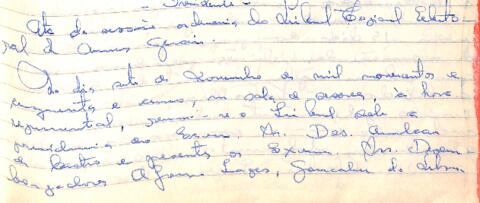 Presidente -
Ata da sessão ordinaria do Tribunal Regional Eleito-
ral de Minas Gerais.
Aos dias sete de Novembro de mil novecentos e
cinquenta e cinco, na sala de sessões, à hora
regimental, reuniu-se o Tribunal sob a
presidencia do Exmo. Sr. Des. Amilcar
de Castro e presentes os Exmos. Srs. Desem-
bargadores Afonso Lages, Gonçalves da Silva